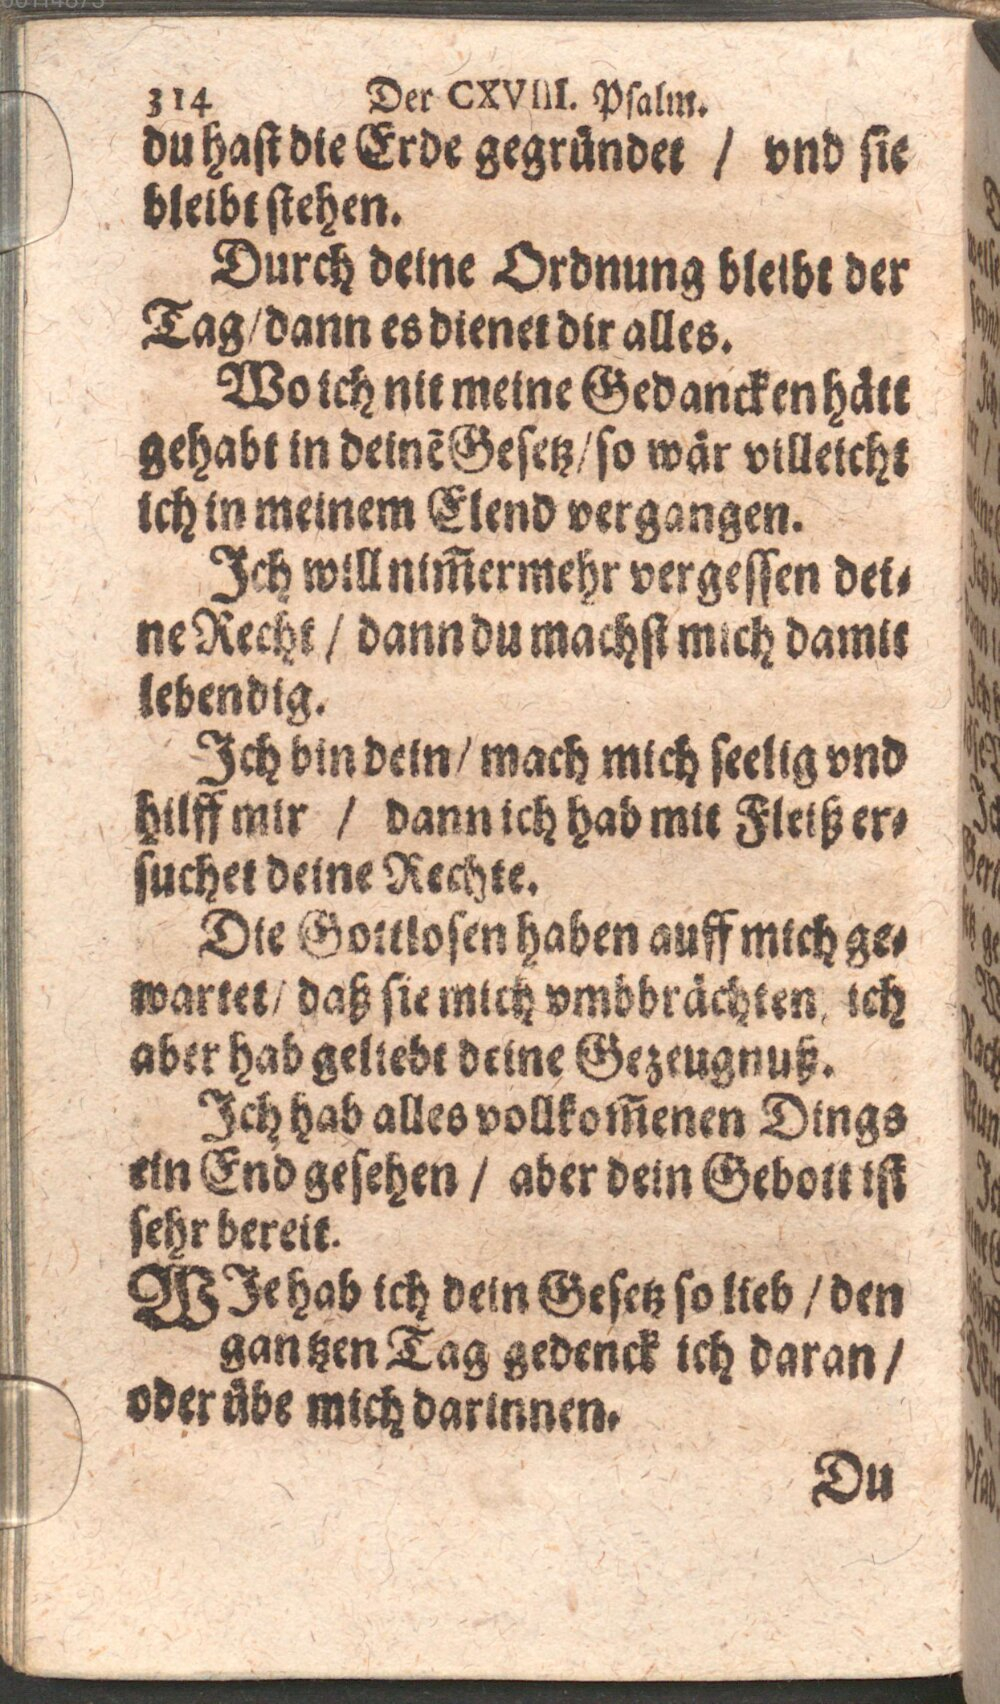 314 Der CXVIII. Psalm.
du hast die Erde gegründet / vnd sie
bleibt stehen.
Durch deine Ordnung bleibt der
Tag/dann es dienet dir alles.
Wo ich nit meine Gedancken hätt
gehabt in deinẽ Gesetz/so wär villeicht
ich in meinem Elend vergangen.
Ich will nim̃ermehr vergessen dei-
ne Recht / dann du machst mich damit
lebendig.
Ich bin dein/ mach mich seelig vnd
hilff mir / dann ich hab mit Fleiß er-
suchet deine Rechte.
Die Gottlosen haben auff mich ge-
wartet/ daß sie mich vmbbrächten, ich
aber hab geliebt deine Gezeugnuß.
Ich hab alles vollkom̃enen Dings
ein End gesehen / aber dein Gebott ist
sehr bereit.
WIe hab ich dein Gesetz so lieb / den
gantzen Tag gedenck ich daran /
oder übe mich darinnen.
Du